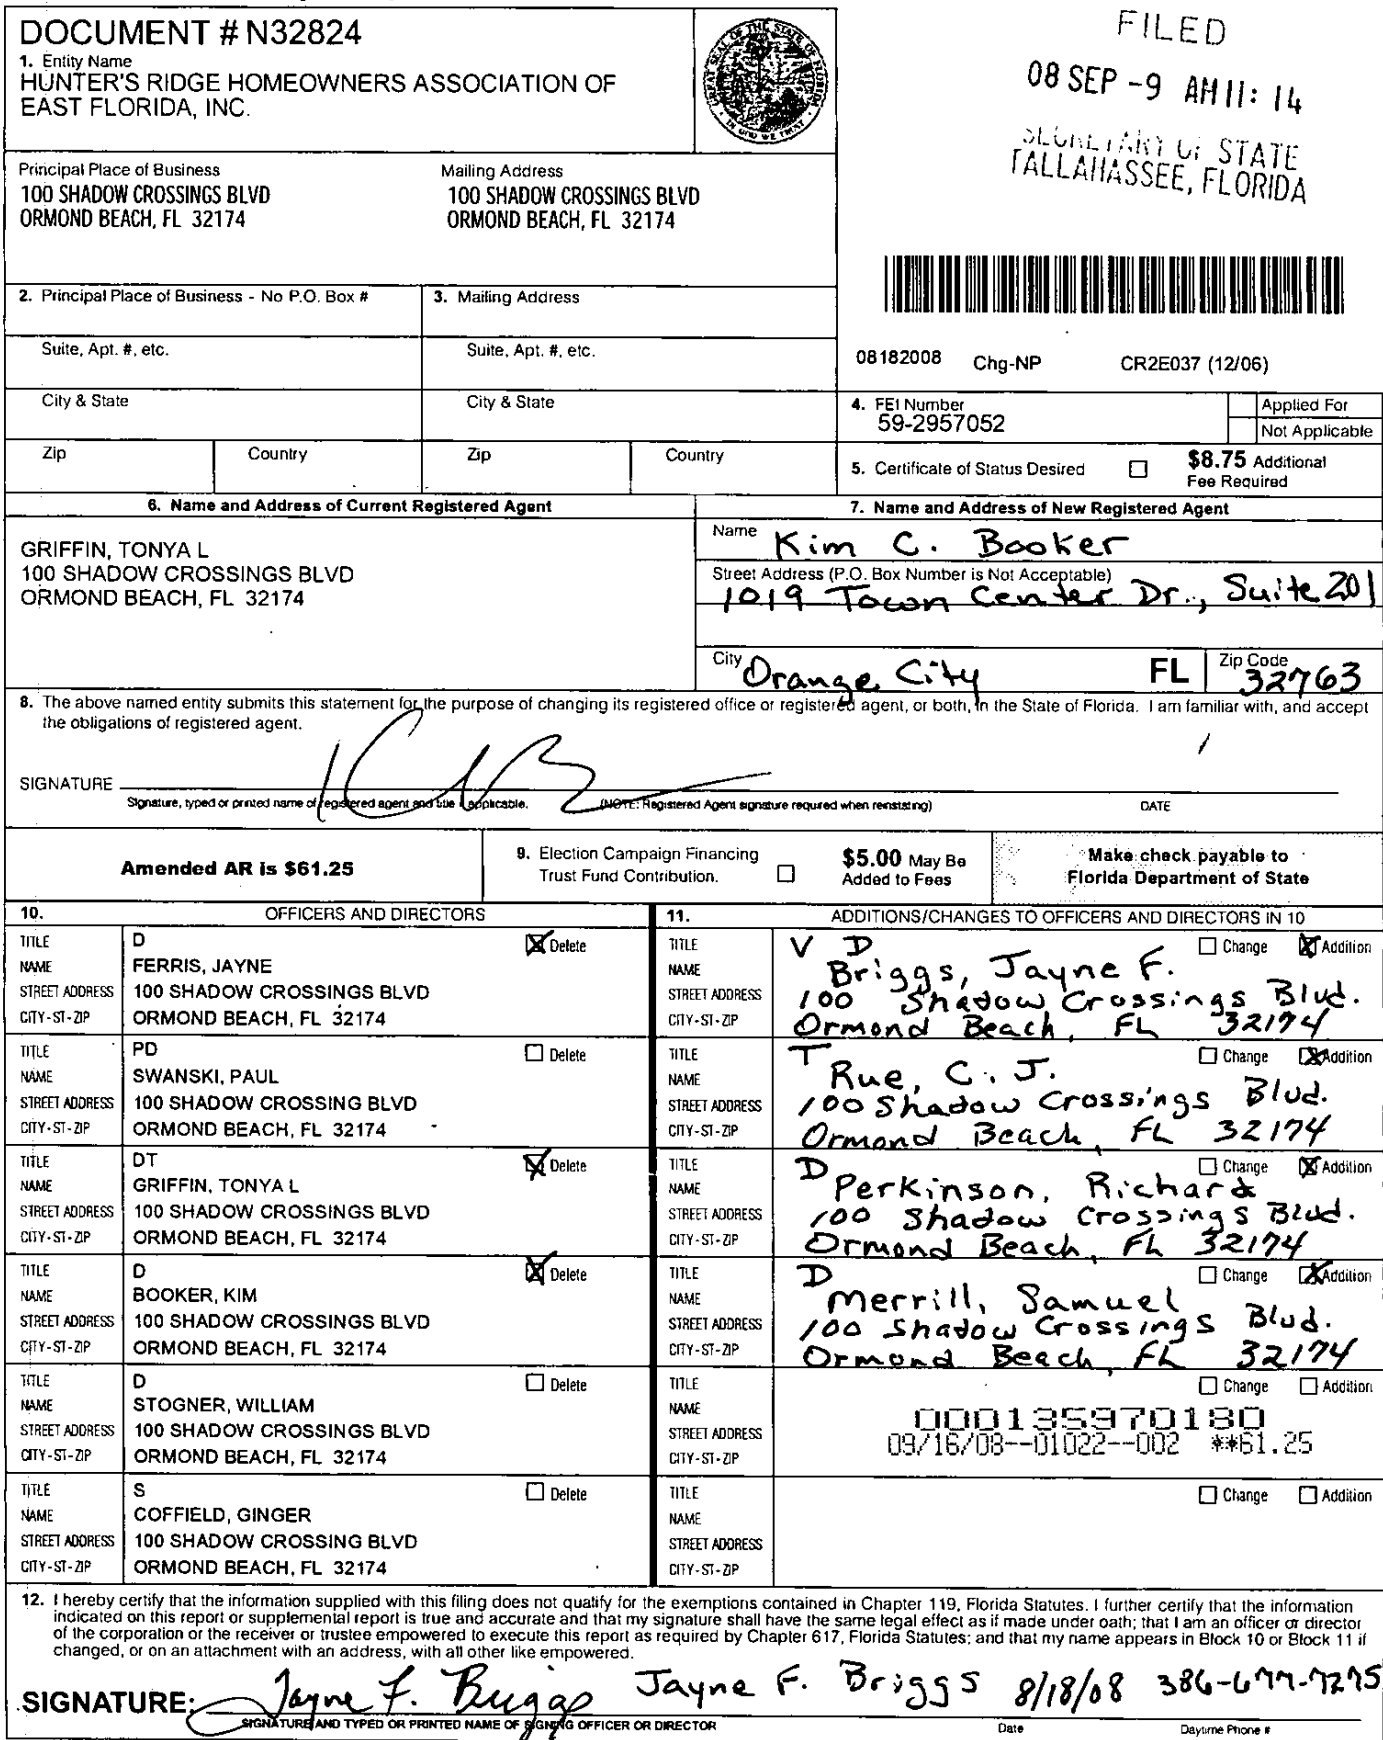 DOCUMENT # N32824
1. Entity Name
HUNTER'S RIDGE HOMEOWNERS ASSOCIATION OF
EAST FLORIDA, INC.
GREAT SEAL OF THE STATE OF FLORIDA
IN GOD WE TRUST
FILED
08 SEP -9 AM 11: 14
SECRETARY OF STATE
TALLAHASSEE, FLORIDA
Principal Place of Business
100 SHADOW CROSSINGS BLVD
ORMOND BEACH, FL 32174
Mailing Address
100 SHADOW CROSSINGS BLVD
ORMOND BEACH, FL 32174
2. Principal Place of Business - No P.O. Box #
3. Mailing Address
Suite, Apt. #, etc.
Suite, Apt. #, etc.
City & State
City & State
Zip
Country
Zip
Country
08182008 Chg-NP CR2E037 (12/06)
4. FEI Number
59-2957052
Applied For
Not Applicable
5. Certificate of Status Desired
$8.75 Additional
Fee Required
6. Name and Address of Current Registered Agent
GRIFFIN, TONYA L
100 SHADOW CROSSINGS BLVD
ORMOND BEACH, FL 32174
7. Name and Address of New Registered Agent
Name Kim C. Booker
Street Address (P.O. Box Number is Not Acceptable)
1019 Town Center Dr., Suite 201
City Orange City FL Zip Code 32763
8. The above named entity submits this statement for the purpose of changing its registered office or registered agent, or both, in the State of Florida. I am familiar with, and accept
the obligations of registered agent.
SIGNATURE
Signature, typed or printed name of registered agent and title if applicable. (NOTE: Registered Agent signature required when reinstating) DATE
Amended AR is $61.25
9. Election Campaign Financing
Trust Fund Contribution.
$5.00 May Be
Added to Fees
Make check payable to
Florida Department of State
10. OFFICERS AND DIRECTORS
TITLE D Delete
NAME FERRIS, JAYNE
STREET ADDRESS 100 SHADOW CROSSINGS BLVD
CITY-ST-ZIP ORMOND BEACH, FL 32174
TITLE PD Delete
NAME SWANSKI, PAUL
STREET ADDRESS 100 SHADOW CROSSING BLVD
CITY-ST-ZIP ORMOND BEACH, FL 32174
TITLE DT Delete
NAME GRIFFIN, TONYA L
STREET ADDRESS 100 SHADOW CROSSINGS BLVD
CITY-ST-ZIP ORMOND BEACH, FL 32174
TITLE D Delete
NAME BOOKER, KIM
STREET ADDRESS 100 SHADOW CROSSINGS BLVD
CITY-ST-ZIP ORMOND BEACH, FL 32174
TITLE D Delete
NAME STOGNER, WILLIAM
STREET ADDRESS 100 SHADOW CROSSINGS BLVD
CITY-ST-ZIP ORMOND BEACH, FL 32174
TITLE S Delete
NAME COFFIELD, GINGER
STREET ADDRESS 100 SHADOW CROSSING BLVD
CITY-ST-ZIP ORMOND BEACH, FL 32174
11. ADDITIONS/CHANGES TO OFFICERS AND DIRECTORS IN 10
TITLE V D Change Addition
NAME Briggs, Jayne F.
STREET ADDRESS 100 Shadow Crossings Blvd.
CITY-ST-ZIP Ormond Beach, FL 32174
TITLE T Change Addition
NAME Rue, C. J.
STREET ADDRESS 100 Shadow Crossings Blvd.
CITY-ST-ZIP Ormond Beach, FL 32174
TITLE D Change Addition
NAME Perkinson, Richard
STREET ADDRESS 100 Shadow Crossings Blvd.
CITY-ST-ZIP Ormond Beach, FL 32174
TITLE D Change Addition
NAME Merrill, Samuel
STREET ADDRESS 100 Shadow Crossings Blvd.
CITY-ST-ZIP Ormond Beach, FL 32174
TITLE Change Addition
NAME 000135970180
STREET ADDRESS 09/16/08--01022--002 **61.25
CITY-ST-ZIP
TITLE Change Addition
NAME
STREET ADDRESS
CITY-ST-ZIP
12. I hereby certify that the information supplied with this filing does not qualify for the exemptions contained in Chapter 119, Florida Statutes. I further certify that the information
indicated on this report or supplemental report is true and accurate and that my signature shall have the same legal effect as if made under oath; that I am an officer or director
of the corporation or the receiver or trustee empowered to execute this report as required by Chapter 617, Florida Statutes; and that my name appears in Block 10 or Block 11 if
changed, or on an attachment with an address, with all other like empowered.
SIGNATURE: Jayne F. Briggs Jayne F. Briggs 8/18/08 386-677-7275
SIGNATURE AND TYPED OR PRINTED NAME OF SIGNING OFFICER OR DIRECTOR Date Daytime Phone #